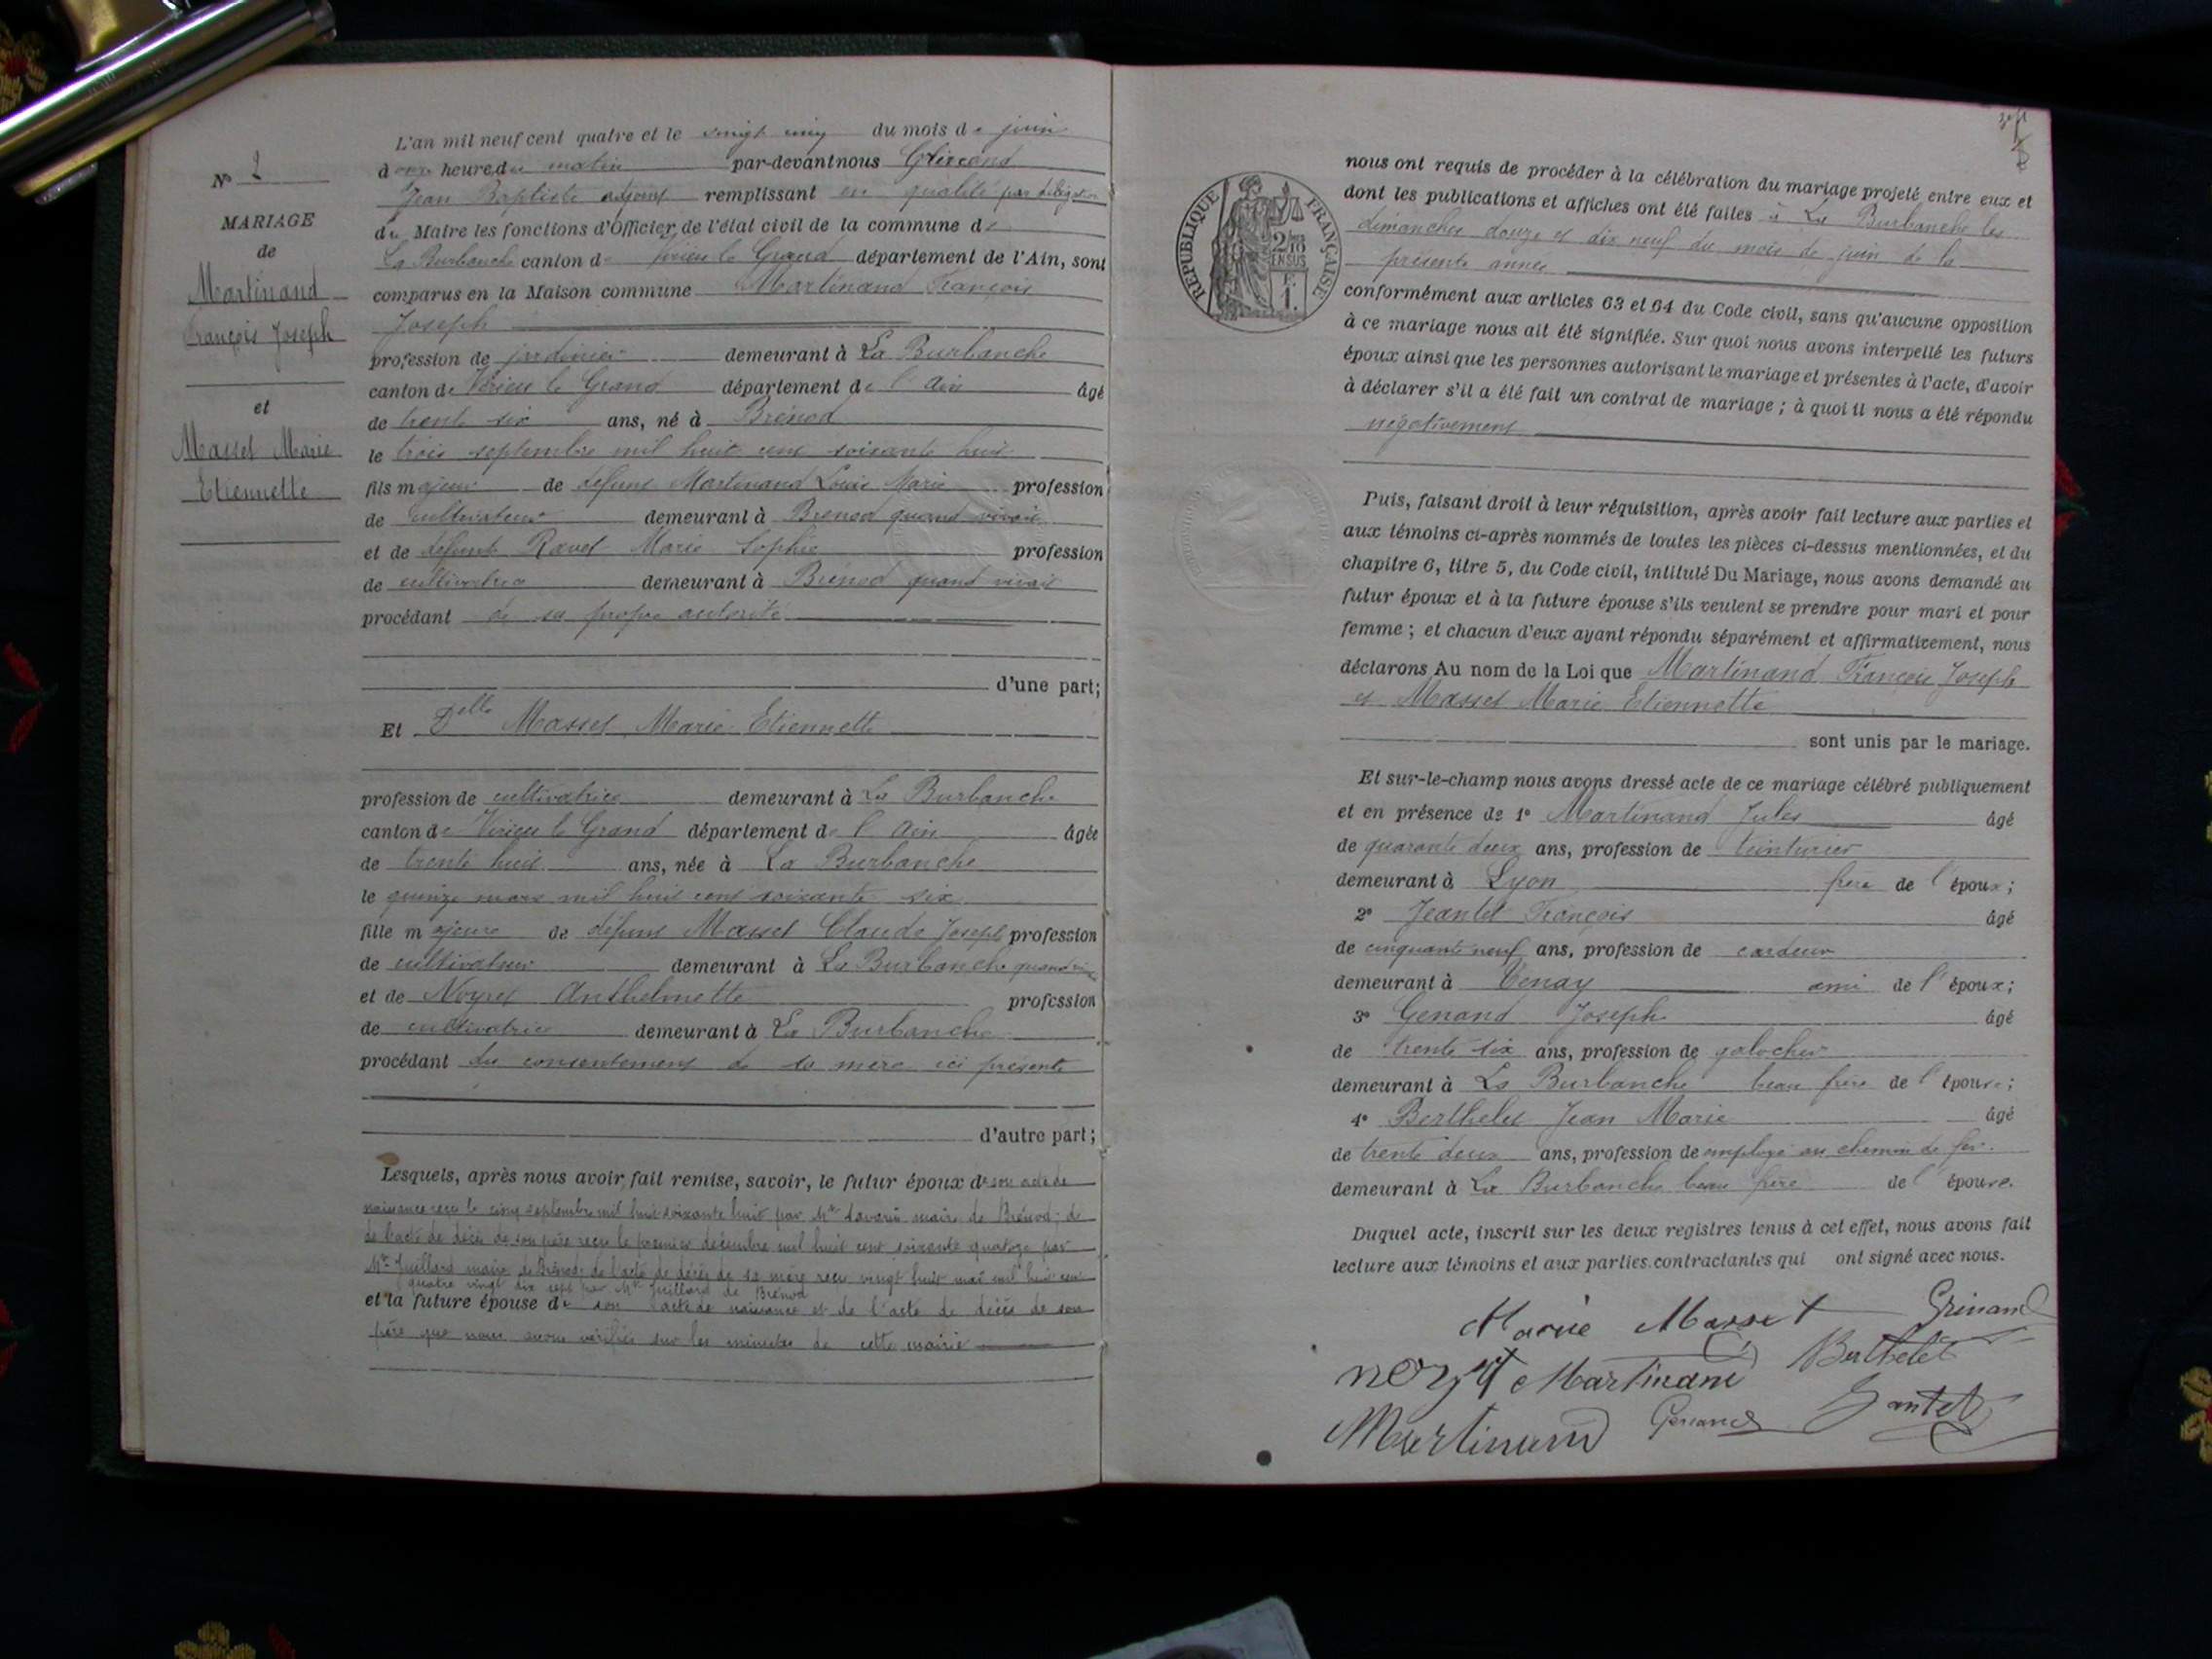 N° 2
MARIAGE
de
Martinand
François Joseph
et
Masset Marie
Etiennette
L'an mil neuf cent quatre et le vingt cinq du mois de juin
à onze heures du matin par-devant nous
Jean Baptiste adjoint remplissant en qualité par délégation
du Maire les fonctions d'Officier de l'état civil de la commune de
La Burbanche canton de Virieu le Grand département de l'Ain, sont
comparus en la Maison commune Martinand François
Joseph
profession de jardinier demeurant à La Burbanche
canton de Virieu le Grand département de l'Ain âgé
de trente six ans, né à Brénod
le trois septembre mil huit cent soixante huit
fils majeur de défunt Martinand Louis Marie profession
de cultivateur demeurant à Brénod quand vivait
et de défunte Ravet Marie Sophie profession
de cultivatrice demeurant à Brénod quand vivait
procédant de sa propre autorité
d'une part;
Et Delle Masset Marie Etiennette
profession de cultivatrice demeurant à La Burbanche
canton de Virieu le Grand département de l'Ain âgée
de trente huit ans, née à La Burbanche
le quinze mars mil huit cent soixante six
fille majeure de défunt Masset Claude Joseph profession
de cultivateur demeurant à La Burbanche quand
et de Noyret Anthelmette profession
de cultivatrice demeurant à La Burbanche
procédant du consentement de sa mère ici présente
d'autre part;
Lesquels, après nous avoir fait remise, savoir, le futur époux de son acte de
naissance reçu le cinq septembre mil huit soixante huit par Mr maire de Brénod; de
de l'acte de décès de son père reçu le premier décembre mil huit cent soixante quatorze par
Mr Juillard maire de Brénod; de l'acte de décès de sa mère reçu vingt huit mai mil huit cent
quatre vingt dix sept par Mr Juillard de Brénod
et la future épouse de son acte de naissance et de l'acte de décès de son
père que nous avons vérifiés sur les minutes de cette mairie
RÉPUBLIQUE FRANÇAISE
2/10 EN SUS
F. 1.
nous ont requis de procéder à la célébration du mariage projeté entre eux et
dont les publications et affiches ont été faites à La Burbanche les
dimanches douze et dix neuf du mois de juin de la
présente année
conformément aux articles 63 et 64 du Code civil, sans qu'aucune opposition
à ce mariage nous ait été signifiée. Sur quoi nous avons interpellé les futurs
époux ainsi que les personnes autorisant le mariage et présentes à l'acte, d'avoir
à déclarer s'il a été fait un contrat de mariage; à quoi il nous a été répondu
négativement
Puis, faisant droit à leur réquisition, après avoir fait lecture aux parties et
aux témoins ci-après nommés de toutes les pièces ci-dessus mentionnées, et du
chapitre 6, titre 5, du Code civil, intitulé Du Mariage, nous avons demandé au
futur époux et à la future épouse s'ils veulent se prendre pour mari et pour
femme; et chacun d'eux ayant répondu séparément et affirmativement, nous
déclarons Au nom de la Loi que Martinand François Joseph
et Masset Marie Etiennette
sont unis par le mariage.
Et sur-le-champ nous avons dressé acte de ce mariage célébré publiquement
et en présence de 1° Martinand Jules âgé
de quarante deux ans, profession de teinturier
demeurant à Lyon frère de l'époux;
2° Jeantet François âgé
de cinquante neuf ans, profession de cardeur
demeurant à Tenay ami de l'époux;
3° Genand Joseph âgé
de trente six ans, profession de galochier
demeurant à La Burbanche beau frère de l'épouse;
4° Berthelet Jean Marie âgé
de trente deux ans, profession de employé au chemin de fer.
demeurant à La Burbanche beau frère de l'épouse.
Duquel acte, inscrit sur les deux registres tenus à cet effet, nous avons fait
lecture aux témoins et aux parties contractantes qui ont signé avec nous.
Marie Masset
Martinand Berthelet
Martinand Genand Jantet